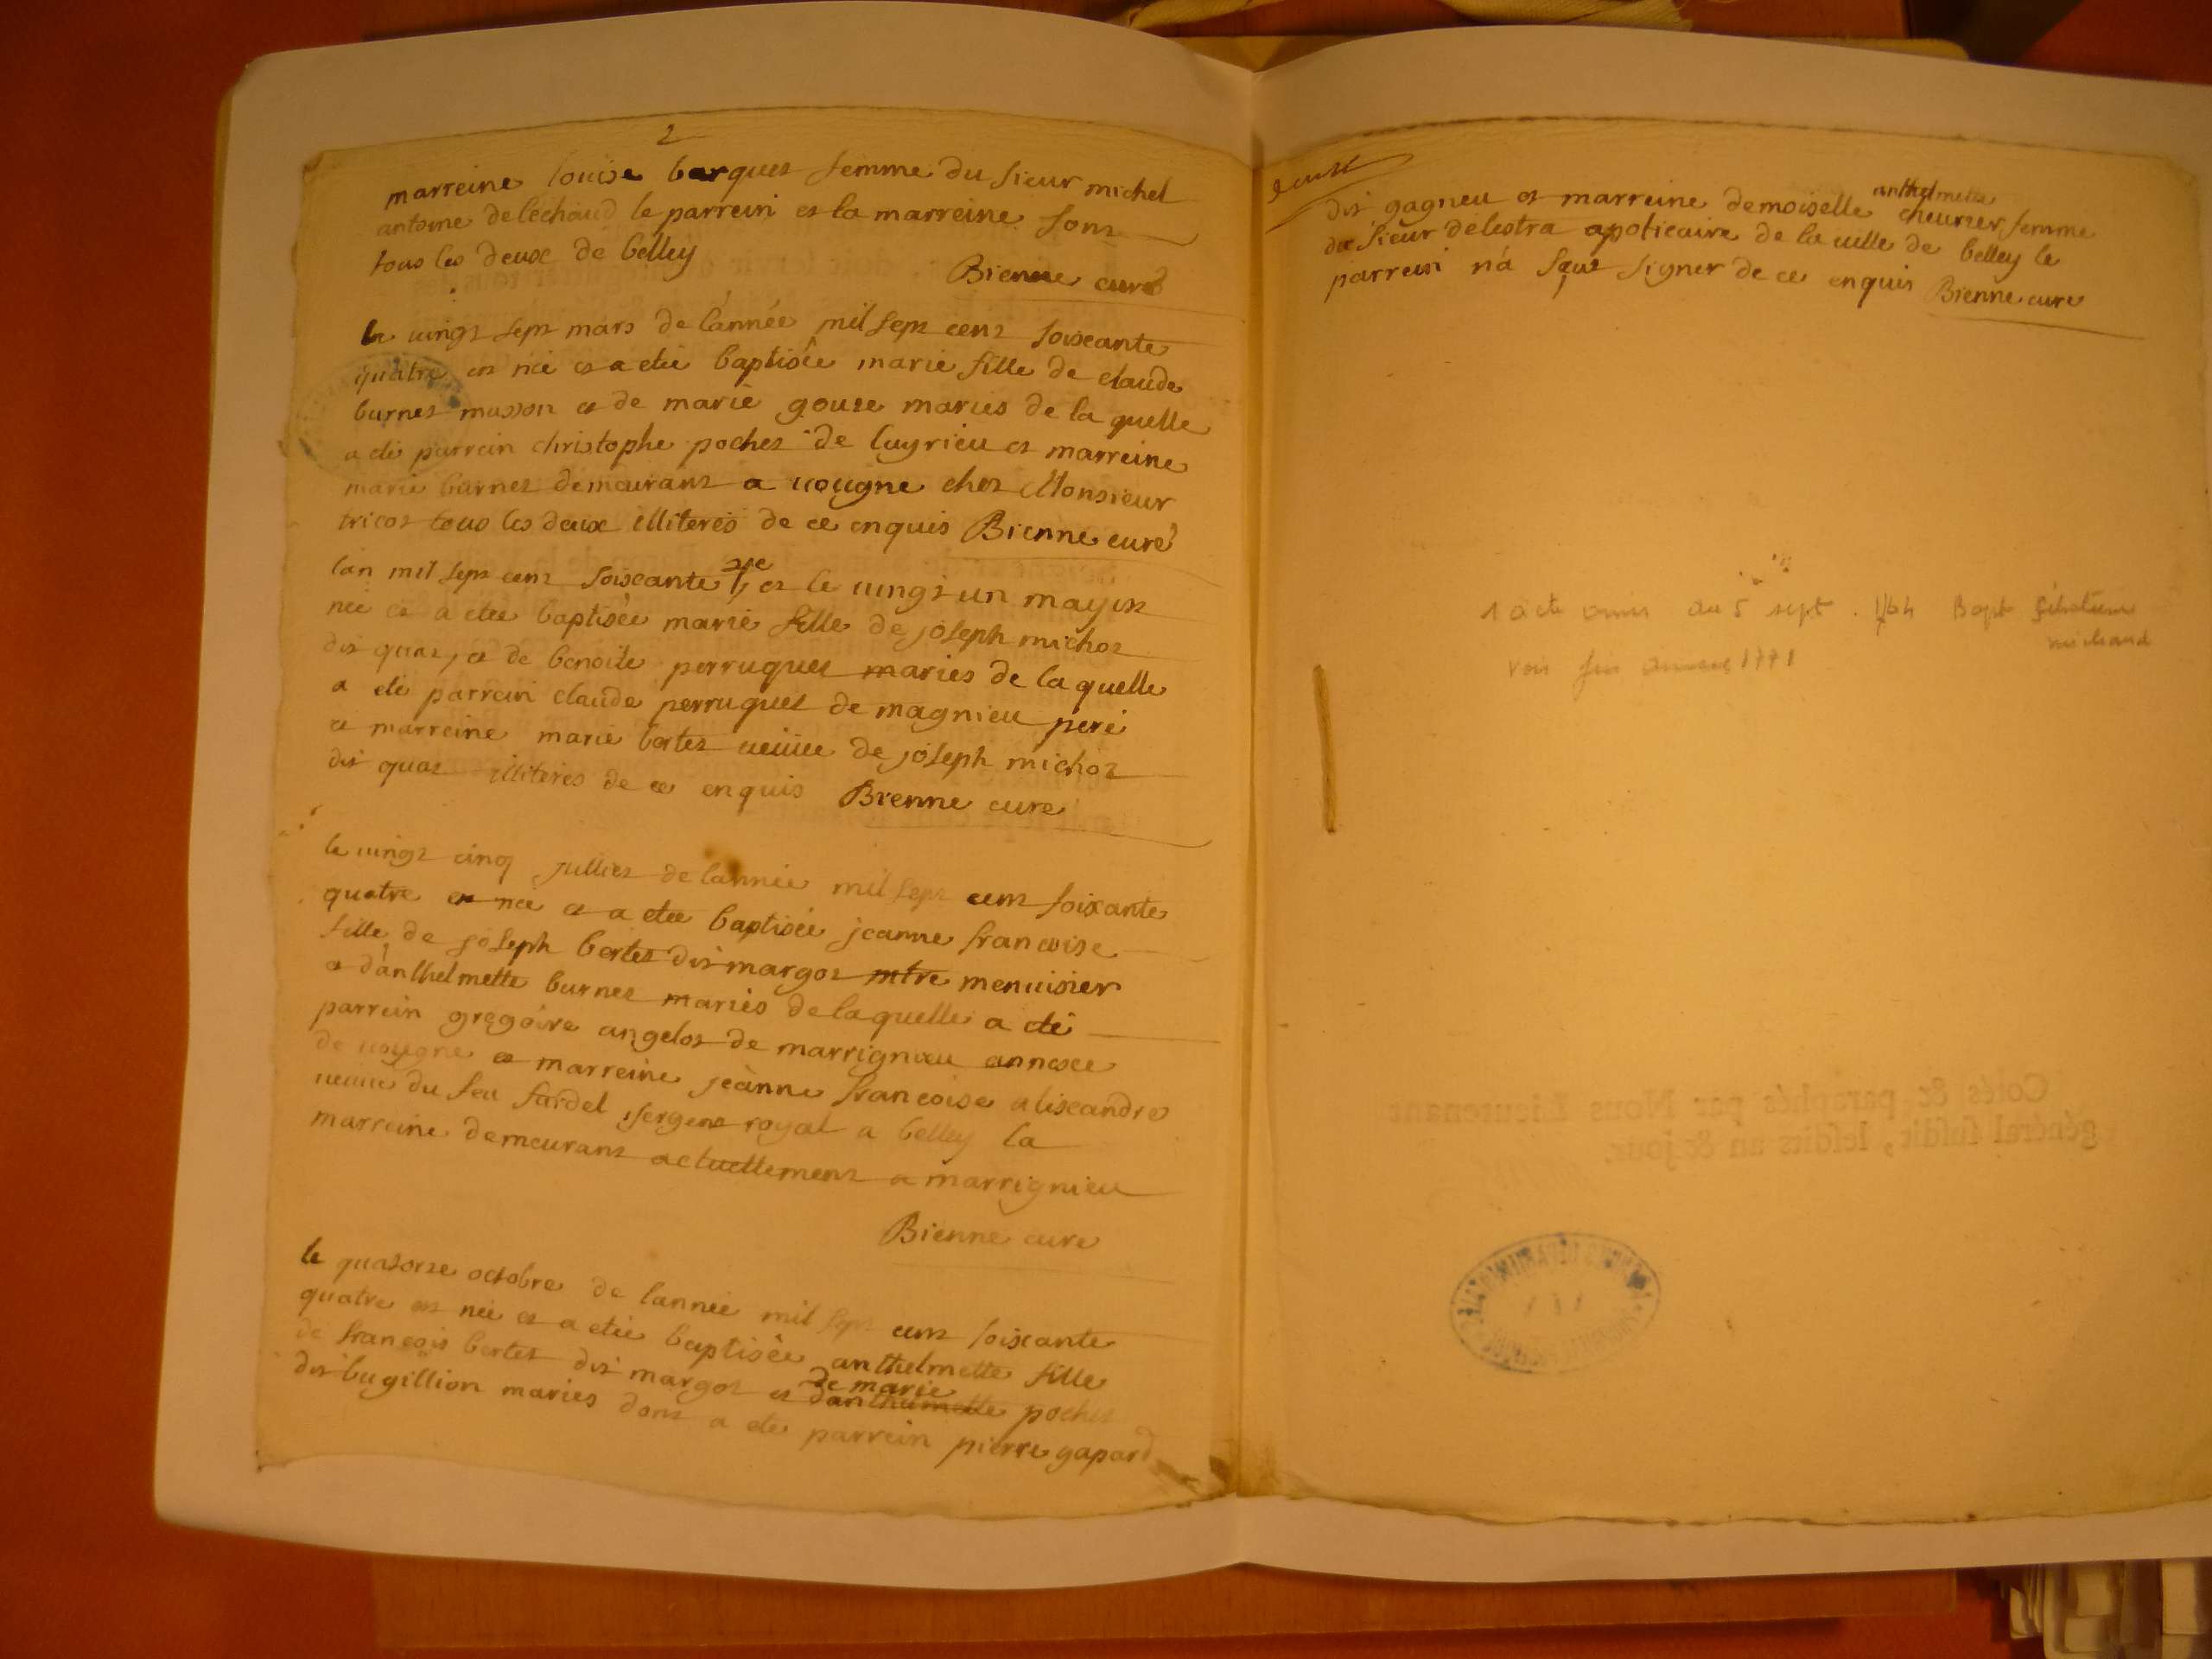 2
marreine louise barquet femme du sieur michel
antoine delechaud le parrein et la marreine sont
tous les deux de belley
Bienne curé
le vingt sept mars de l'année mil sept cent soixante
quatre est née et a etée baptisée marie fille de claude
burnet masson et de marie gouze mariés de la quelle
a été parrein christophe pochet de luyrieu et marreine
marie burnet demeurant a vougne chez Monsieur
tricot tous les deux illiterés de ce enquis Bienne curé
l'an mil sept cent soixante et le vingt un may est
née et a etée baptisée marie fille de joseph michot
dit quat, et de benoite perruquet maries de la quelle
a été parrein claude perruquet de magnieu
et marreine marie bertet veuve de joseph michot
dit quat illiterés de ce enquis Bienne curé
le vingt cinq juillet de lannée mil sept cent soixante
quatre est née et a etée baptisée jeanne francoise
fille de joseph bertet dit margot mtre menuisier
et d'anthelmette burnet mariés de laquelle a été
parrein gregoire angelot de marrignieu annexe
de vougne et marreine jeanne francoise alixandre
veuve du feu fardel sergent royal a belley la
marreine demeurant actuellement a marrignieu
Bienne curé
le quatorze octobre de lannée mil sept cent soixante
quatre est née et a etée baptisée anthelmette fille
de françois bertet dit margot et danthelmette de marie pochet
dit bugillion maries dont a été parrein pierre gapard
dit gagneu et marreine demoiselle anthelmette chevrier femme
du sieur delestra apoticaire de la ville de belley le
parrein n'a sçut signer de ce enquis Bienne curé
1 acte omis du 5 sept. 1764 Bapt
michaud
voir fin année 1771
Cotés & paraphés par Nous Lieutenant
général susdit, lesdits an & jour.